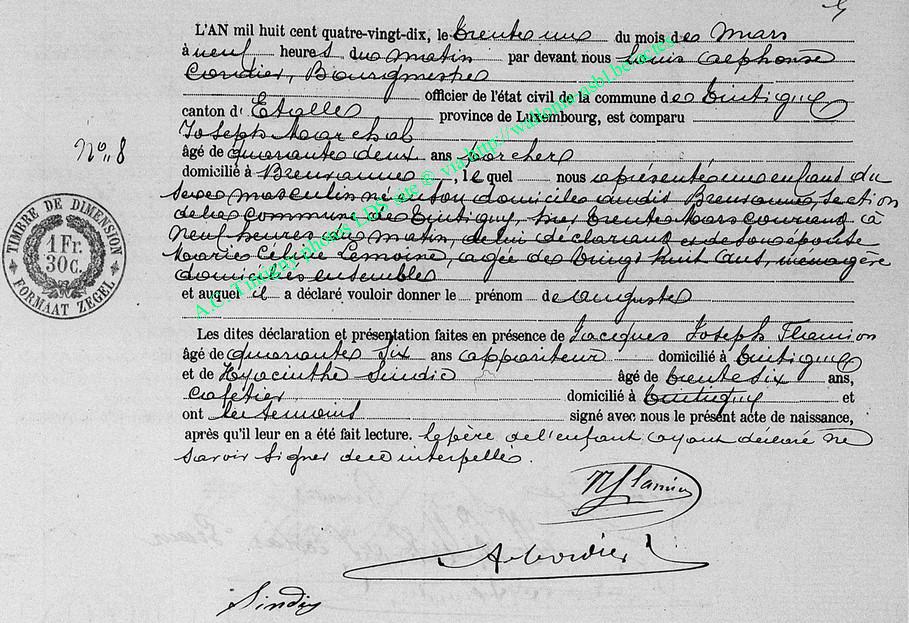 L'AN mil huit cent quatre-vingt-dix, le trente un du mois de Mars
à neuf heures du matin par devant nous Louis Alphonse
Cordier, Bourgmestre
officier de l'état civil de la commune de Tintigny
canton d'Etalle province de Luxembourg, est comparu
Joseph Marchal
No. 8
âgé de quarante deux ans porcher
domicilié à Breuvanne, lequel nous a présenté un enfant du
sexe masculin né en son domicile audit Breuvanne, section
de la commune de Tintigny, hier trente Mars courant à
neuf heures du matin, de lui déclarant et de son épouse
Marie Céline Lemoine, agée de vingt huit ans, ménagère
domiciliés ensemble
et auquel il a déclaré vouloir donner le prénom de Auguste
Les dites déclaration et présentation faites en présence de Jacques Joseph Flamion
âgé de quarante six ans appariteur domicilié à Tintigny
et de Hyacinthe Sindic âgé de trente six ans,
cafetier domicilié à Tintigny et
ont les temoins signé avec nous le présent acte de naissance,
après qu'il leur en a été fait lecture. le père de l'enfant ayant déclaré ne
savoir signer de ce interpellé.
A Cordier
Sindic
TIMBRE DE DIMENSION
1 Fr.
30c.
FORMAAT ZEGEL
A.C. Tintigny photos LDS site © via http://wallonia.asbl.be/actes